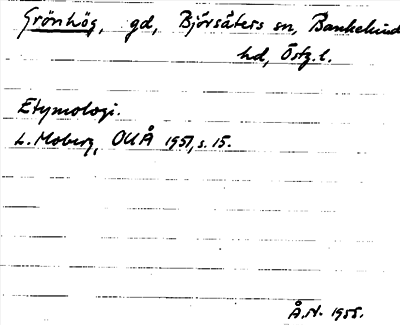 Grönhög, gd, Björsäters sn, Bankekind
hd, Östg. l.
Etymologi.
L. Moberg, OUÅ 1951, s. 15.
Å.N. 1955.